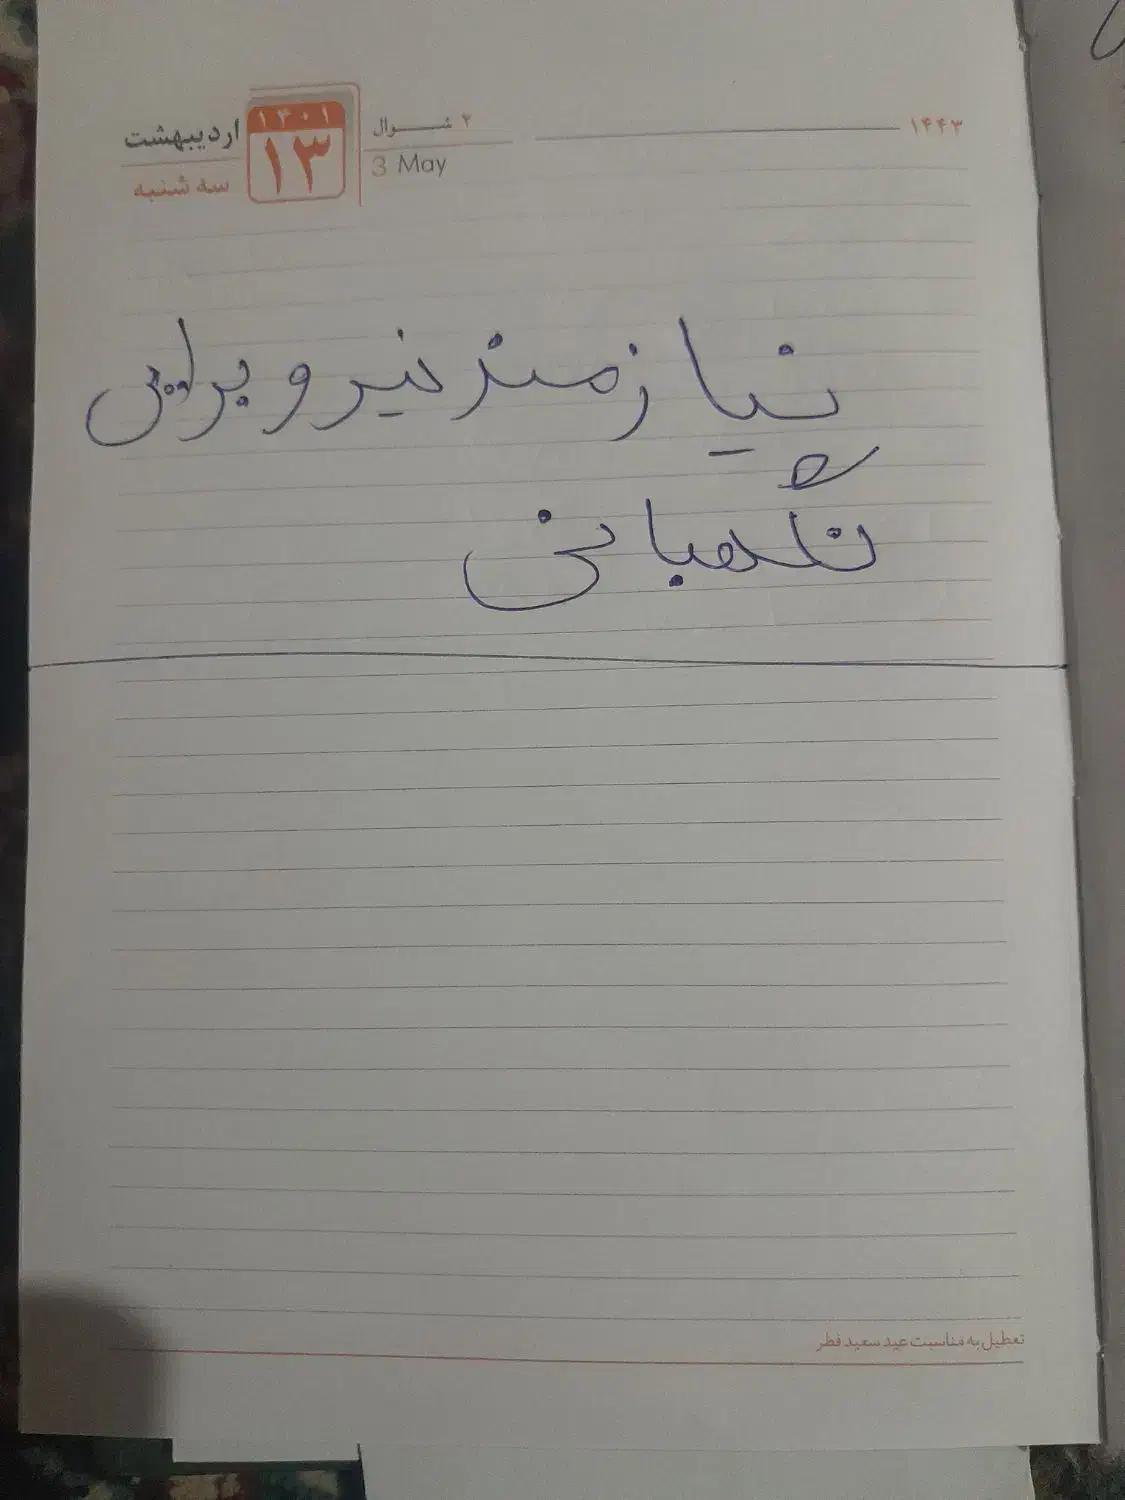 ۱۴۴۳
۲ شوال
3 May
۱۴۰۱
۱۳
اردیبهشت
سه شنبه
نیازمند نیرو برایی
نگهبانی
تعطیل به مناسبت عید سعید فطر